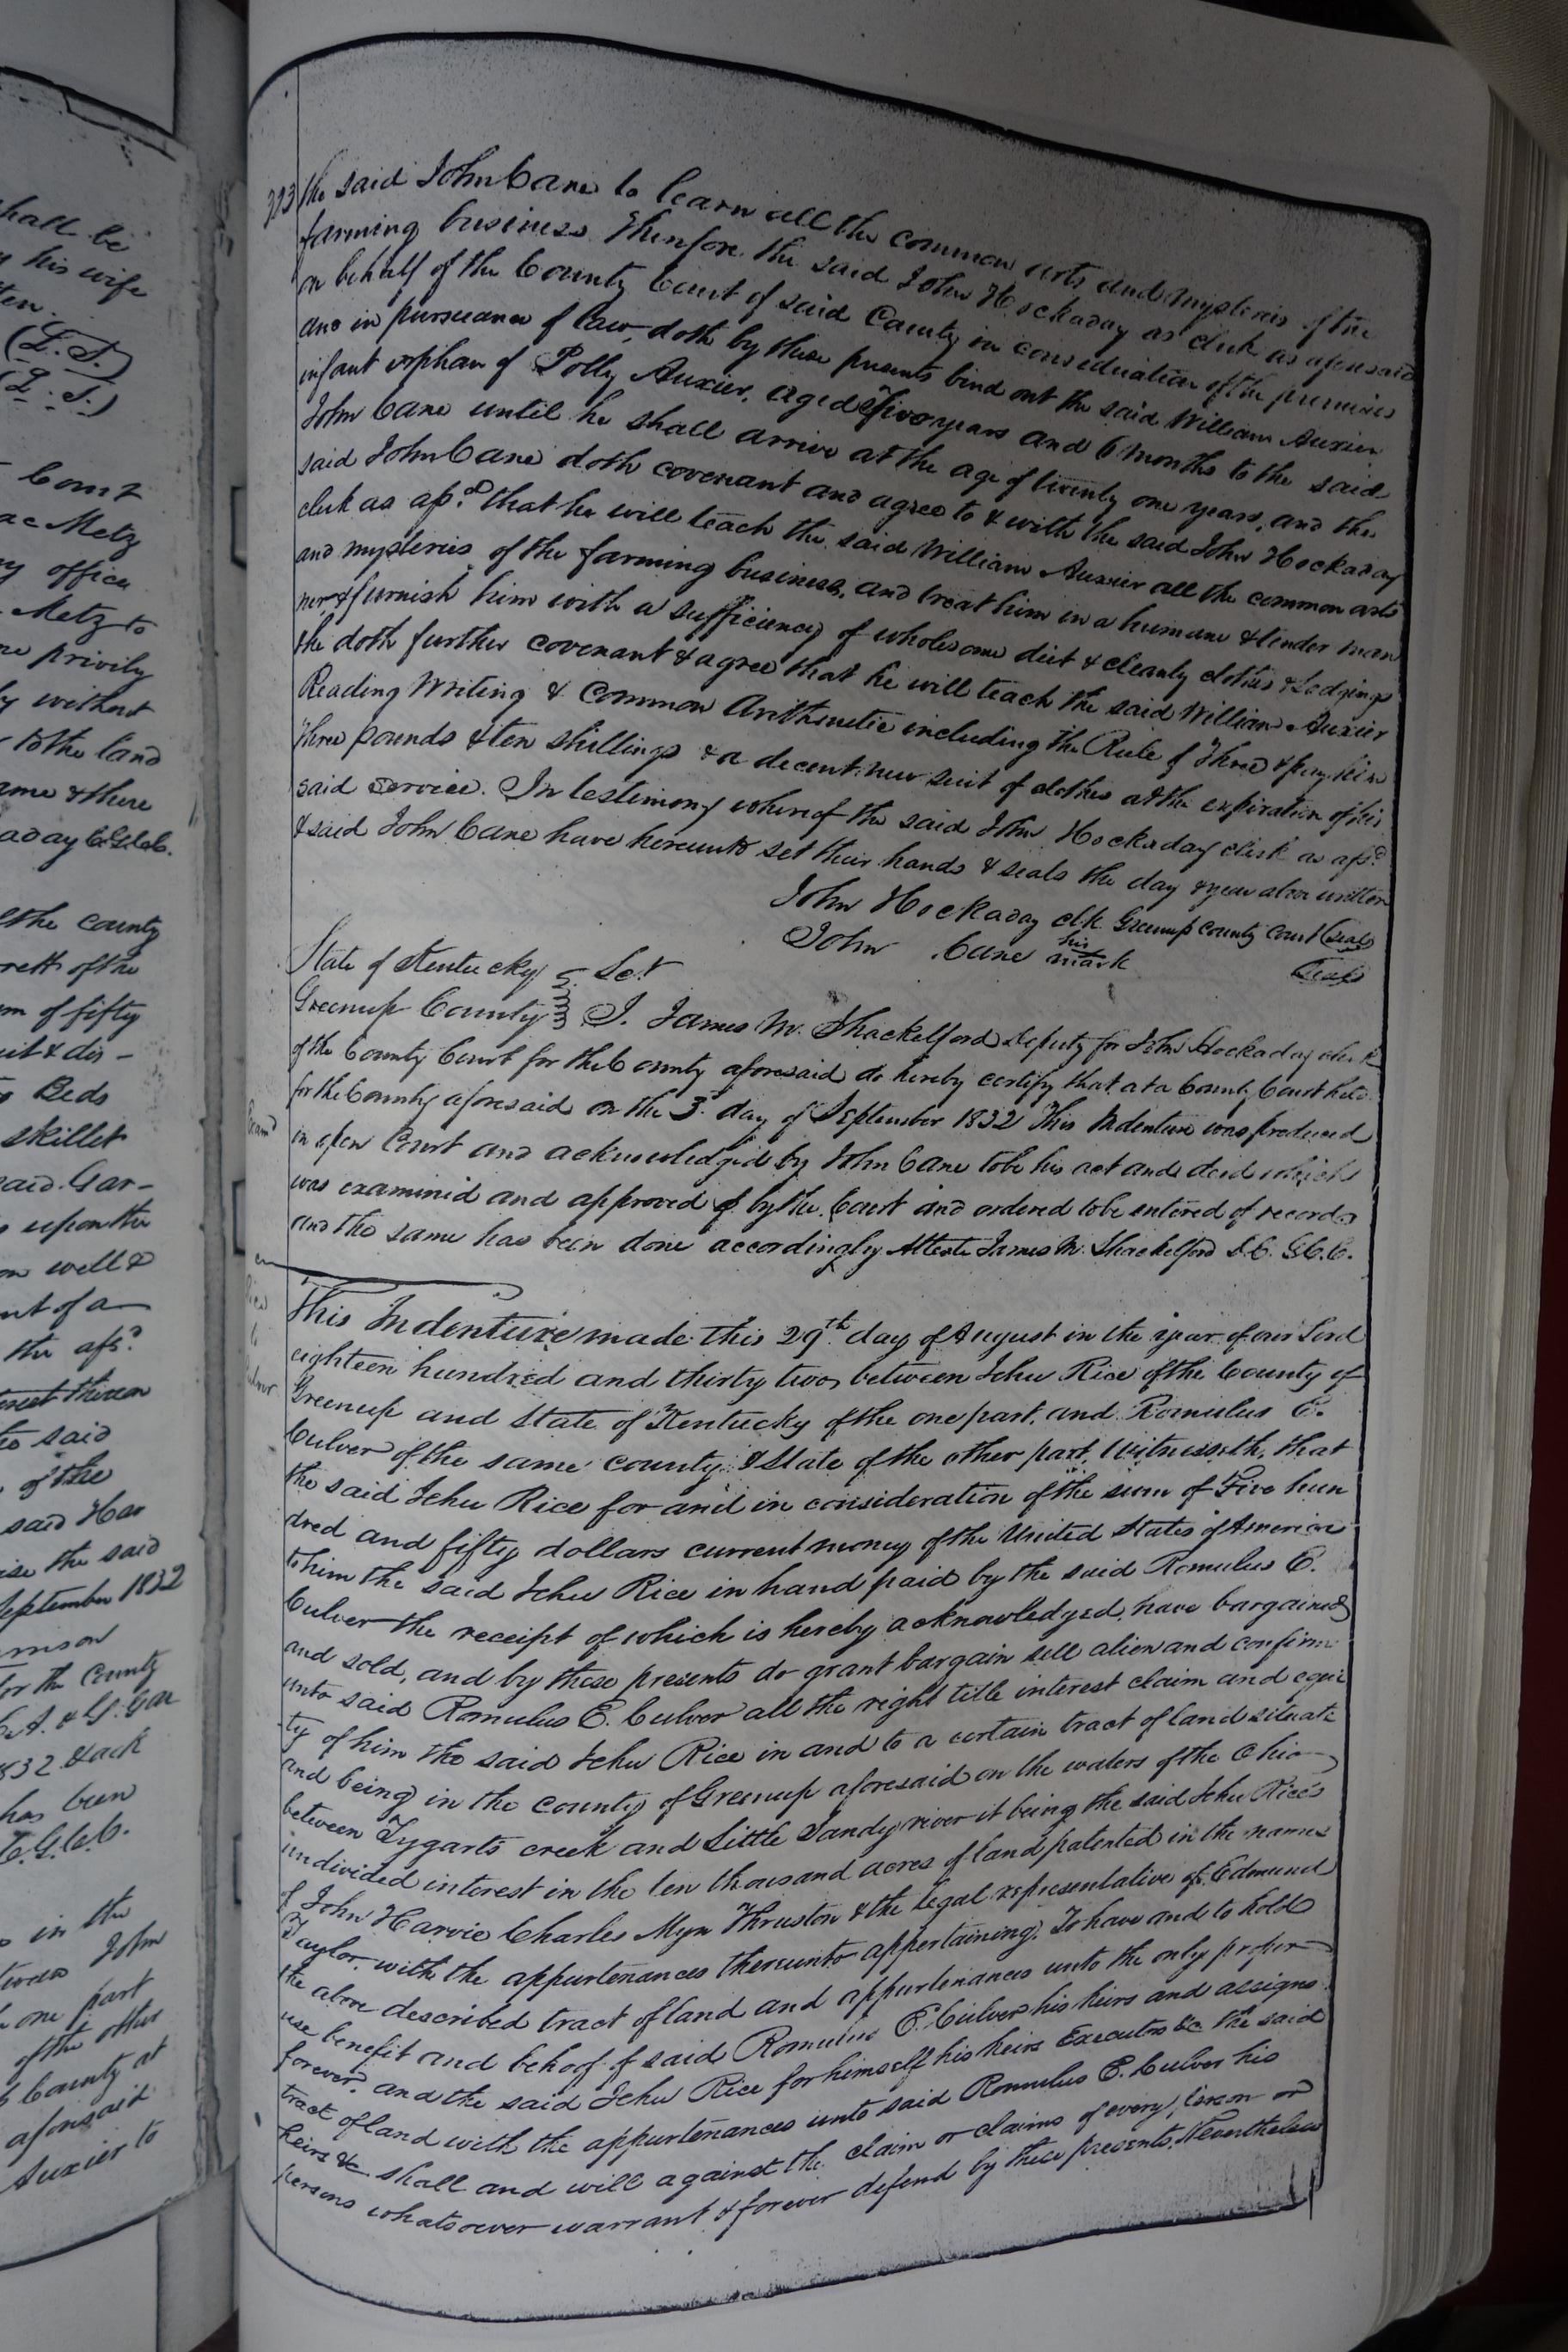 hall be
y his wife
ten.
(L.S.)
(L.S.)
Court
ac Metz
ny office
Metz to
re privily
ly without
to the land
ame & there
aday C.G.C.C.
of the county
rett of the
m of fifty
eit & dis-
Beds
skillet
said Gar-
s upon the
on well &
nt of a
the afsd
erest therein
to said
of the
said Har
ise the said
September 1832
for the County
1832. & ack
has been
C.G.C.C.
in the
tween John
one part
of the other
County at
aforesaid
Auxier to
223
the said John Cane to learn all the common arts and mysteries of the
farming business. Therefore the said John Hockaday as clerk as aforesaid
on behalf of the County Court of said County in consideration of the premises
and in pursuance of law, doth by these presents bind out the said William Auxier
infant orphan of Polly Auxier, aged five years and 6 months to the said
John Cane until he shall arrive at the age of twenty one years, and the
said John Cane doth covenant and agree to & with the said John Hockaday
clerk as afsd. that he will teach the said William Auxier all the common arts
and mysteries of the farming business, and treat him in a humane & tender man
ner & furnish him with a sufficiency of wholesome diet & cleanly clothes & Lodgings
he doth further covenant & agree that he will teach the said William Auxier
Reading Writing & Common Arithmetic including the Rule of Three & pay him
three pounds & ten shillings & a decent new suit of clothes at the expiration of his
said service. In testimony whereof the said John Hockaday clerk as afsd.
& said John Cane have hereunto set their hands & seals the day & year above written
John Hockaday clk Greenup County Court (seal)
John Cane his mark (seal)
State of Kentucky } Sct
Greenup County } I. James W. Shackelford Deputy for John Hockaday clerk
of the County Court for the County aforesaid do hereby certify that at a County Court held
for the County aforesaid on the 3d. day of September 1832 This Indenture was produced
in open Court and acknowledged by John Cane to be his act and deed which
was examined and approved of by the Court and ordered to be entered of record
and the same has been done accordingly Atteste James W. Shackelford D.C. G.C.C.
Rice
to
Culver
This Indenture made this 29th day of August in the year of our Lord
eighteen hundred and thirty two, between Jehu Rice of the County of
Greenup and State of Kentucky of the one part, and Romulus E.
Culver of the same county & State of the other part, Witnesseth, that
the said Jehu Rice for and in consideration of the sum of Five hun
dred and fifty dollars current money of the United States of America
to him the said Jehu Rice in hand paid by the said Romulus E.
Culver the receipt of which is hereby acknowledged, have bargained
and sold, and by these presents do grant bargain sell alien and confirm
unto said Romulus E. Culver all the right title interest claim and equi
ty of him the said Jehu Rice in and to a certain tract of land situate
and being in the county of Greenup aforesaid on the waters of the Ohio
between Tygarts creek and Little Sandy river it being the said Jehu Rice's
undivided interest in the ten thousand acres of land patented in the names
of John Harvie Charles Myn Thruston & the legal representative of Edmund
Taylor, with the appurtenances thereunto appertaining. To have and to hold
the above described tract of land and appurtenances unto the only proper
use benefit and behoof of said Romulus E. Culver his heirs and assigns
forever. and the said Jehu Rice for himself his heirs Executors &c the said
tract of land with the appurtenances unto said Romulus E. Culver his
heirs &c shall and will against the claim or claims of every person or
persons whatsoever warrant & forever defend by these presents. Nevertheless